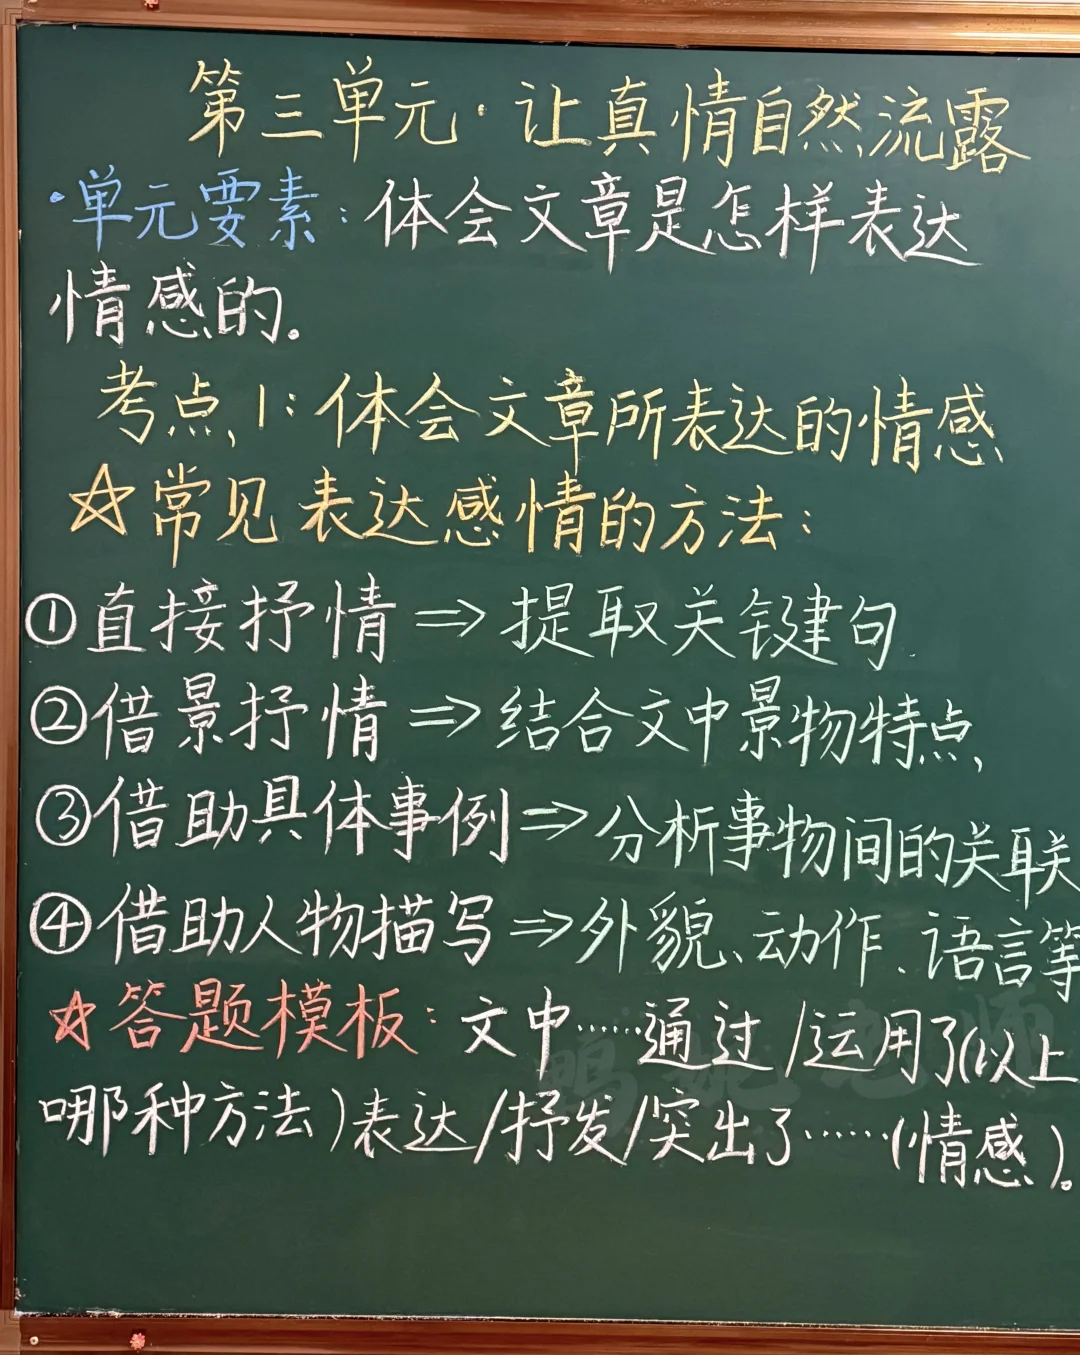 第三单元·让真情自然流露
·单元要素：体会文章是怎样表达
情感的。
考点1：体会文章所表达的情感
☆常见表达感情的方法：
①直接抒情⇒提取关键句
②借景抒情⇒结合文中景物特点
③借助具体事例⇒分析事物间的关联
④借助人物描写⇒外貌、动作、语言等
☆答题模板：文中……通过/运用了(以上
哪种方法)表达/抒发/突出了……(情感)。